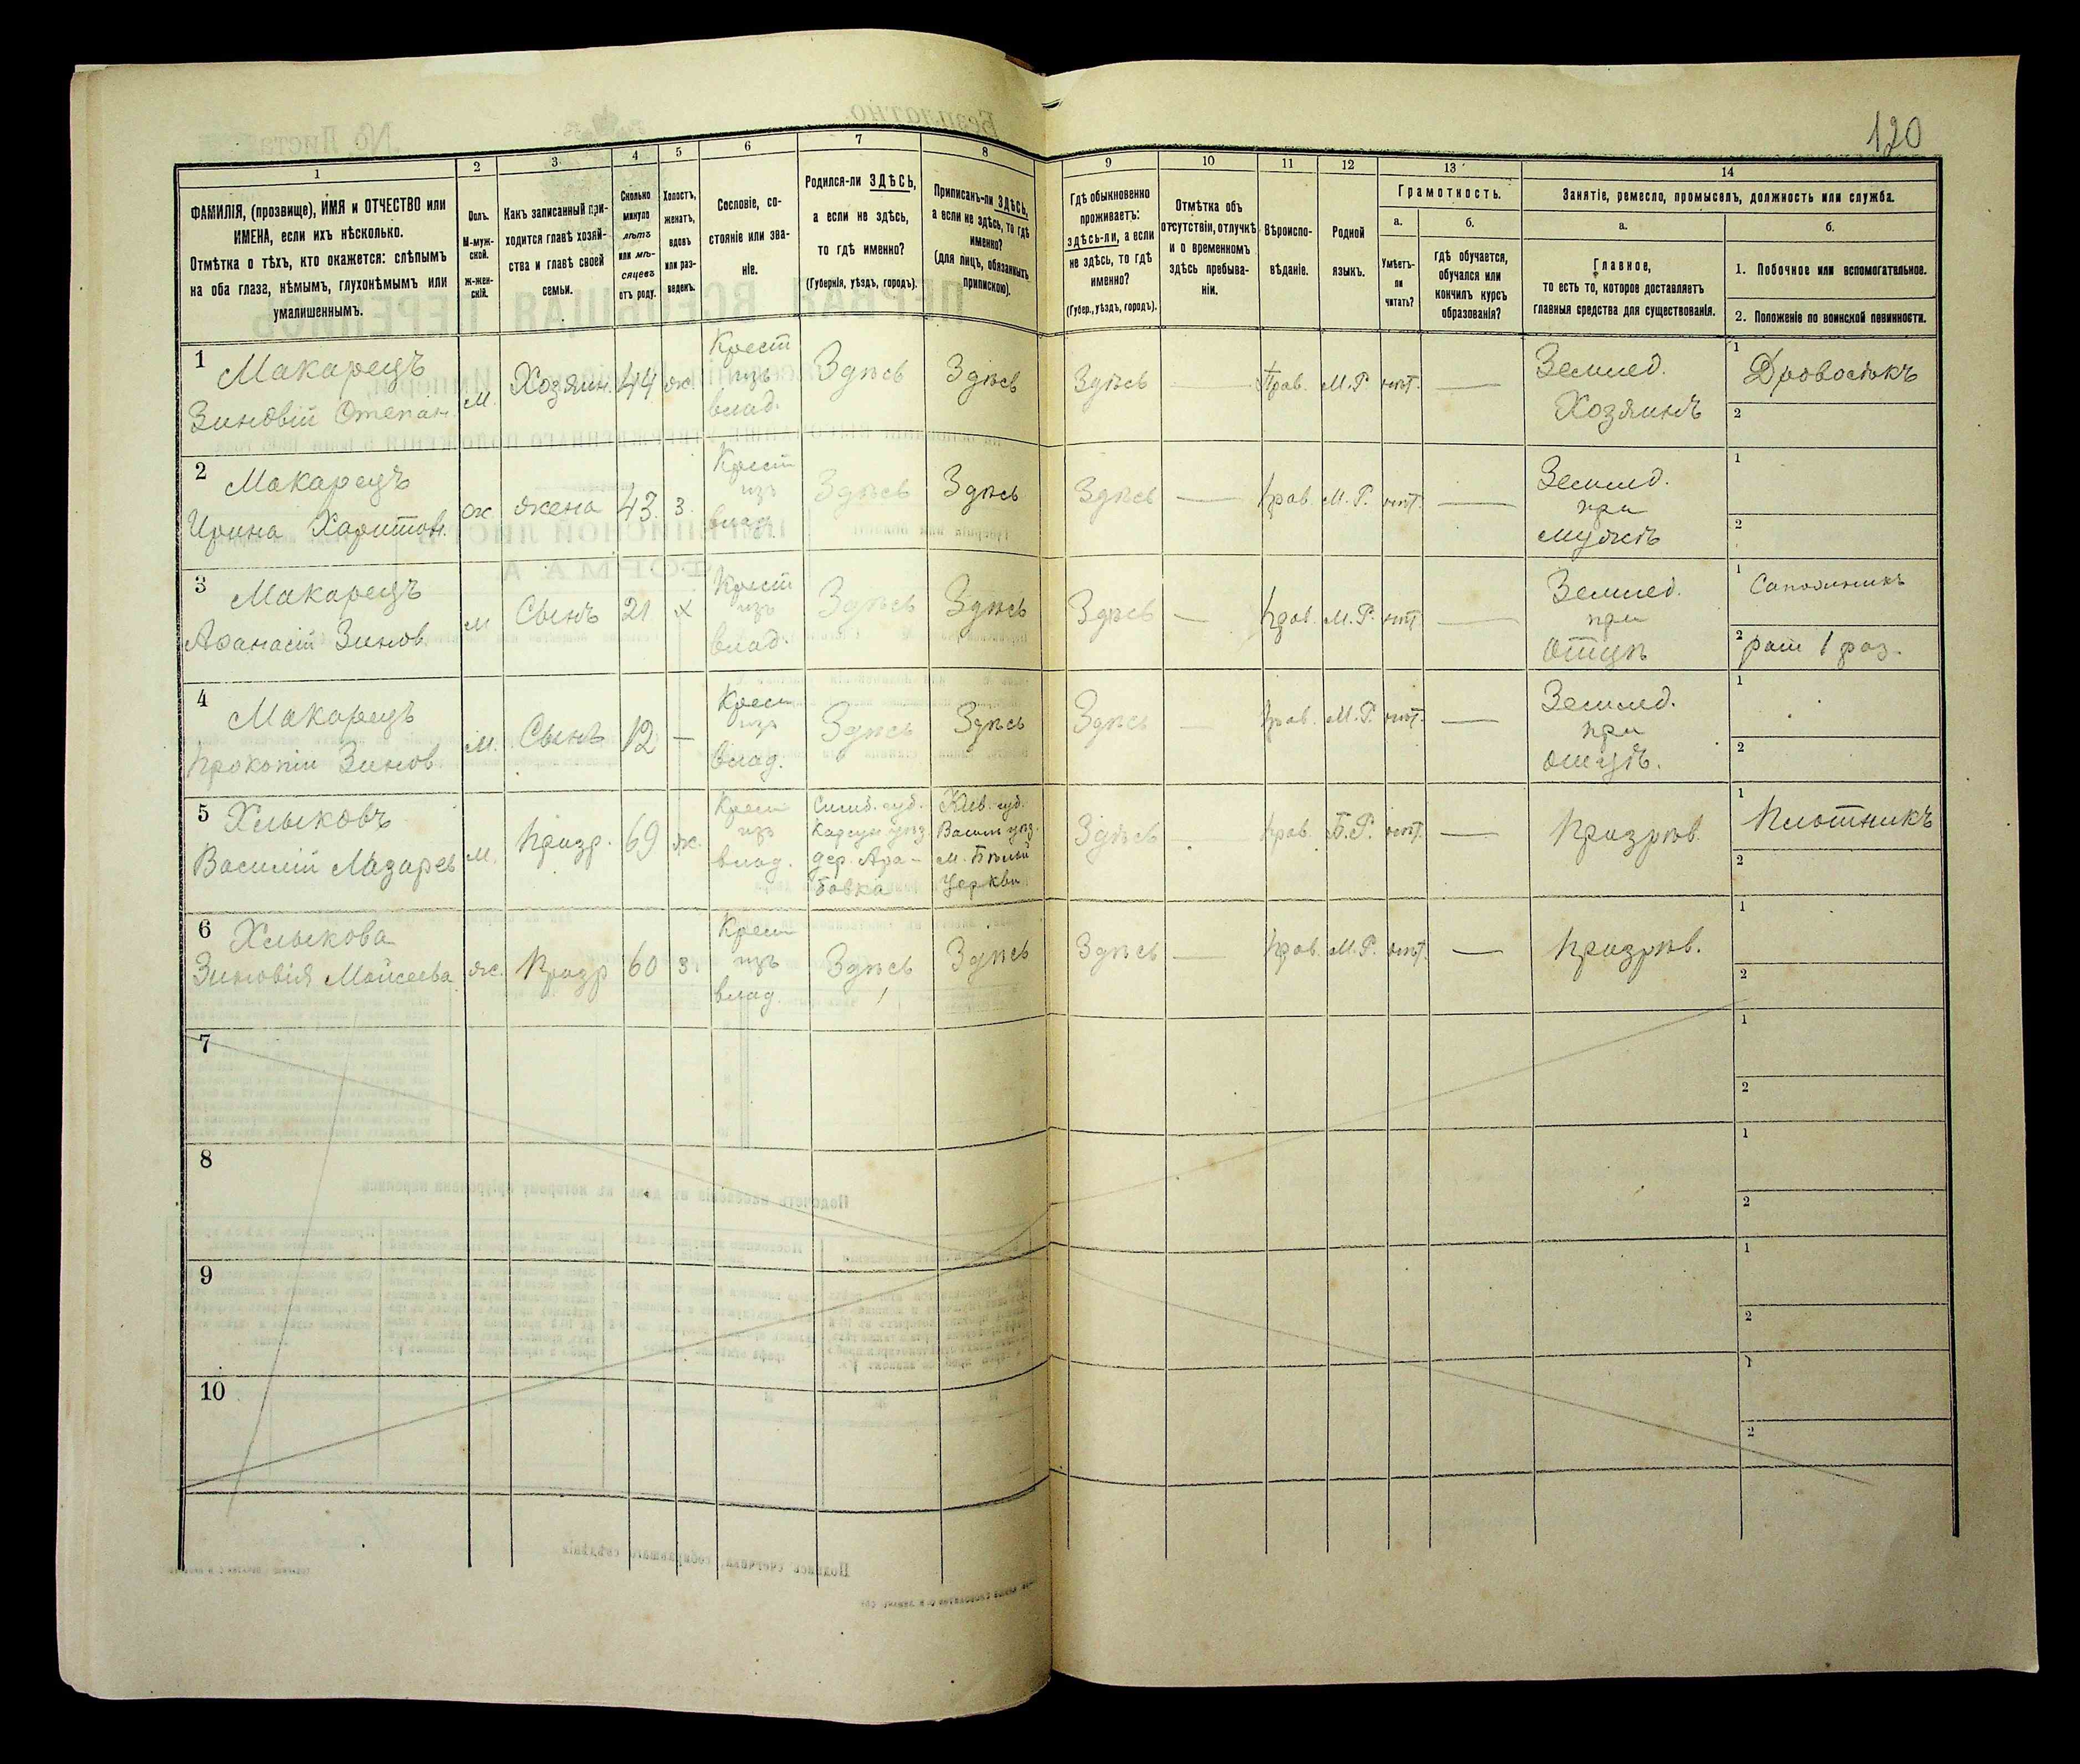 120
1 2 3 4 5 6 7 8 9 10 11 12 13 14
ФАМИЛІЯ, (прозвище), ИМЯ и ОТЧЕСТВО или
ИМЕНА, если ихъ нѣсколько.
Отмѣтка о тѣхъ, кто окажется: слѣпымъ
на оба глаза, нѣмымъ, глухонѣмымъ или
умалишеннымъ.
Полъ.
М-муж-
ской.
ж-жен-
скій.
Какъ записанный при-
ходится главѣ хозяй-
ства и главѣ своей
семьи.
Сколько
минуло
лѣтъ
или мѣ-
сяцевъ
отъ роду.
Холостъ,
женатъ,
вдовъ
или раз-
веденъ.
Сословіе, со-
стояніе или зва-
ніе.
Родился-ли ЗДѢСЬ,
а если не здѣсь,
то гдѣ именно?
(Губернія, уѣздъ, городъ).
Приписанъ-ли ЗДѢСЬ,
а если не здѣсь, то гдѣ
именно?
(для лицъ, обязанныхъ
припискою).
Гдѣ обыкновенно
проживаетъ:
здѣсь-ли, а если
не здѣсь, то гдѣ
именно?
(Губер., уѣздъ, городъ).
Отмѣтка объ
отсутствіи, отлучкѣ
и о временномъ
здѣсь пребыва-
ніи.
Вѣроиспо-
вѣданіе.
Родной
языкъ.
Грамотность.
а.
Умѣетъ-
ли
читать?
б.
гдѣ обучается,
обучался или
кончилъ курсъ
образованія?
Занятіе, ремесло, промыселъ, должность или служба.
а.
Главное,
то есть то, которое доставляетъ
главныя средства для существованія.
б.
1. Побочное или вспомогательное.
2. Положеніе по воинской повинности.
1 Макарецъ
Зиновій Степан.
м. Хозяин. 44 ж.
Крест
изъ
влад.
Здѣсь Здѣсь Здѣсь — Прав. М.Р. нѣт. —
Землед.
Хозяинъ
1 Дровосѣкъ
2
2 Макарецъ
Ирина Харитон.
ж жена 43. з.
Крест
изъ
влад.
Здѣсь Здѣсь Здѣсь — Прав. М.Р. нѣт. —
Землед.
при
мужѣ
1
2
3 Макарецъ
Афанасій Зинов.
м Сынъ 21 х
Крест
изъ
влад.
Здѣсь Здѣсь Здѣсь — Прав. М.Р. нѣт —
Землед.
при
отцѣ
1 Сапожникъ
2 рат 1 раз.
4 Макарецъ
Прокопій Зинов.
м. Сынъ 12 —
Крест
изъ
влад.
Здѣсь Здѣсь Здѣсь — Прав. М.Р. нѣт. —
Землед.
при
отцѣ.
1
2
5 Хлыковъ
Василій Лазарев
м. Призр. 69 ж.
Крест
изъ
влад.
Симб. губ.
Карсун уѣз.
дер. Ара-
бовка
Кіев. губ.
Васил уѣз.
м. Бѣлой
Церкви
Здѣсь — Прав. Б.Р. нѣт. —
Призрѣв.
1 Плотникъ
2
6 Хлыкова
Зиновія Мойсеева
ж. Призр 60 з.
Крест
изъ
влад.
Здѣсь Здѣсь Здѣсь — Прав. М.Р. нѣт. —
Призрѣв.
1
2
7
1
2
8
1
2
9
1
2
10
1
2